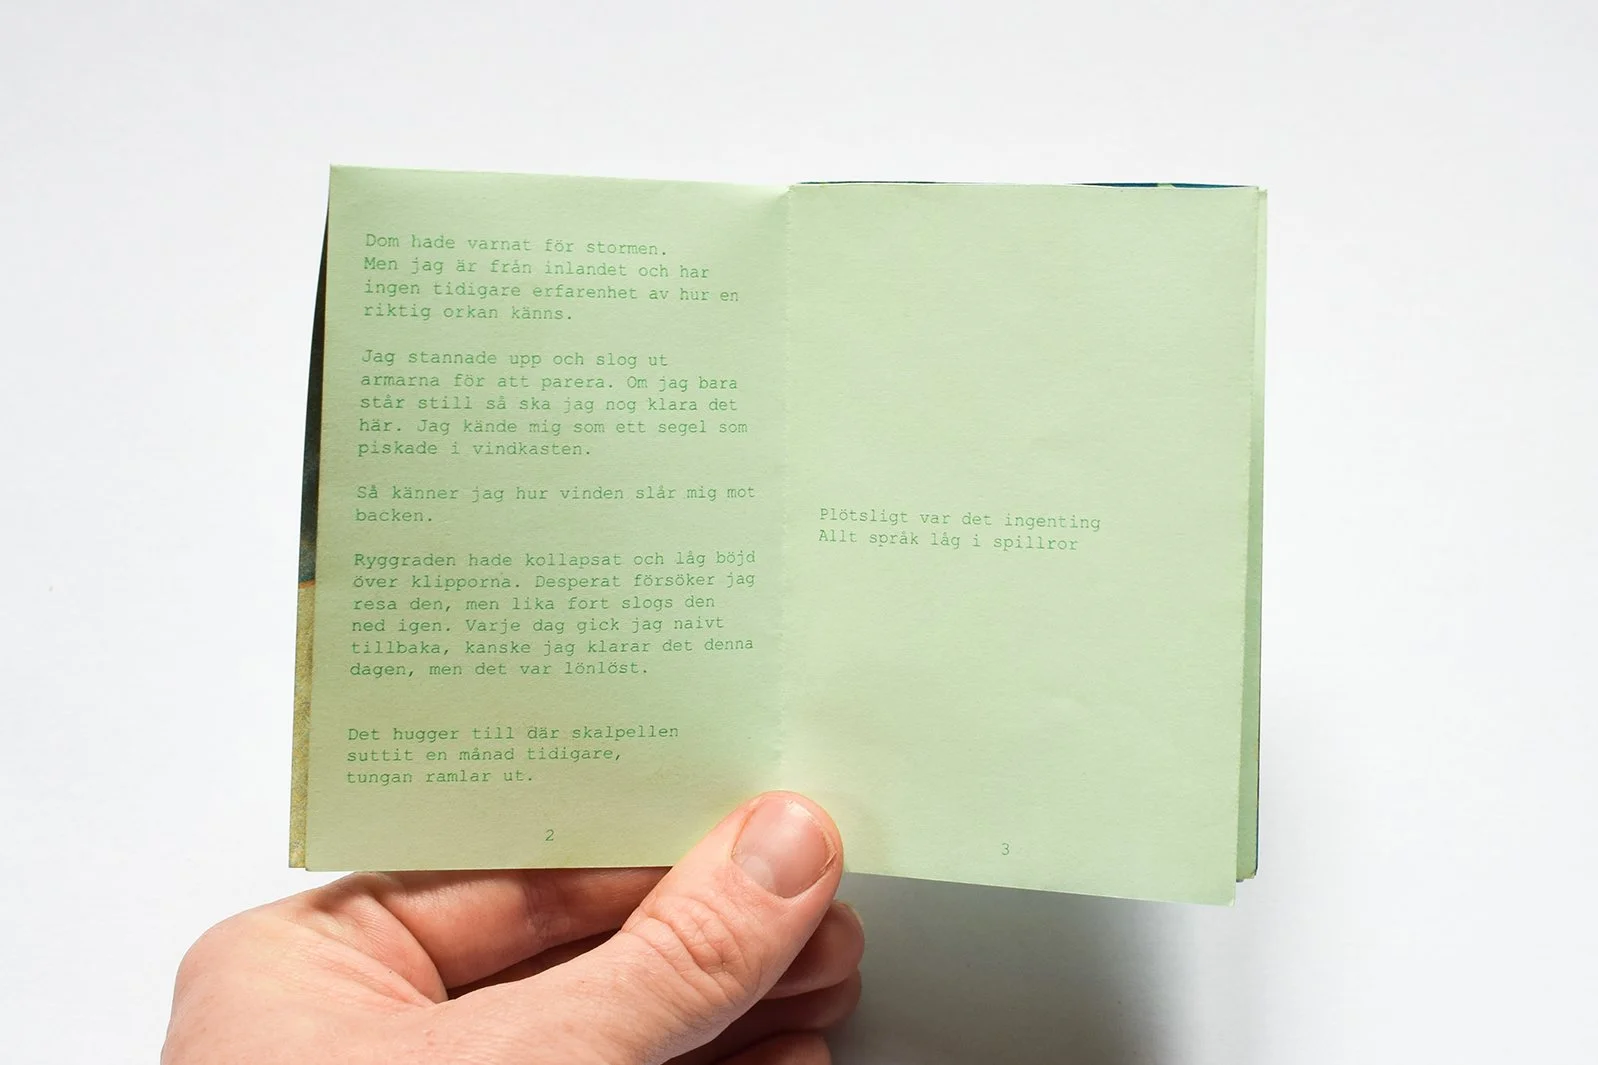 Dom hade varnat för stormen.
Men jag är från inlandet och har
ingen tidigare erfarenhet av hur en
riktig orkan känns.
Jag stannade upp och slog ut
armarna för att parera. Om jag bara
står still så ska jag nog klara det
här. Jag kände mig som ett segel som
piskade i vindkasten.
Så känner jag hur vinden slår mig mot
backen.
Ryggraden hade kollapsat och låg böjd
över klipporna. Desperat försöker jag
resa den, men lika fort slogs den
ned igen. Varje dag gick jag naivt
tillbaka, kanske jag klarar det denna
dagen, men det var lönlöst.
Det hugger till där skalpellen
suttit en månad tidigare,
tungan ramlar ut.
2
Plötsligt var det ingenting
Allt språk låg i spillror
3